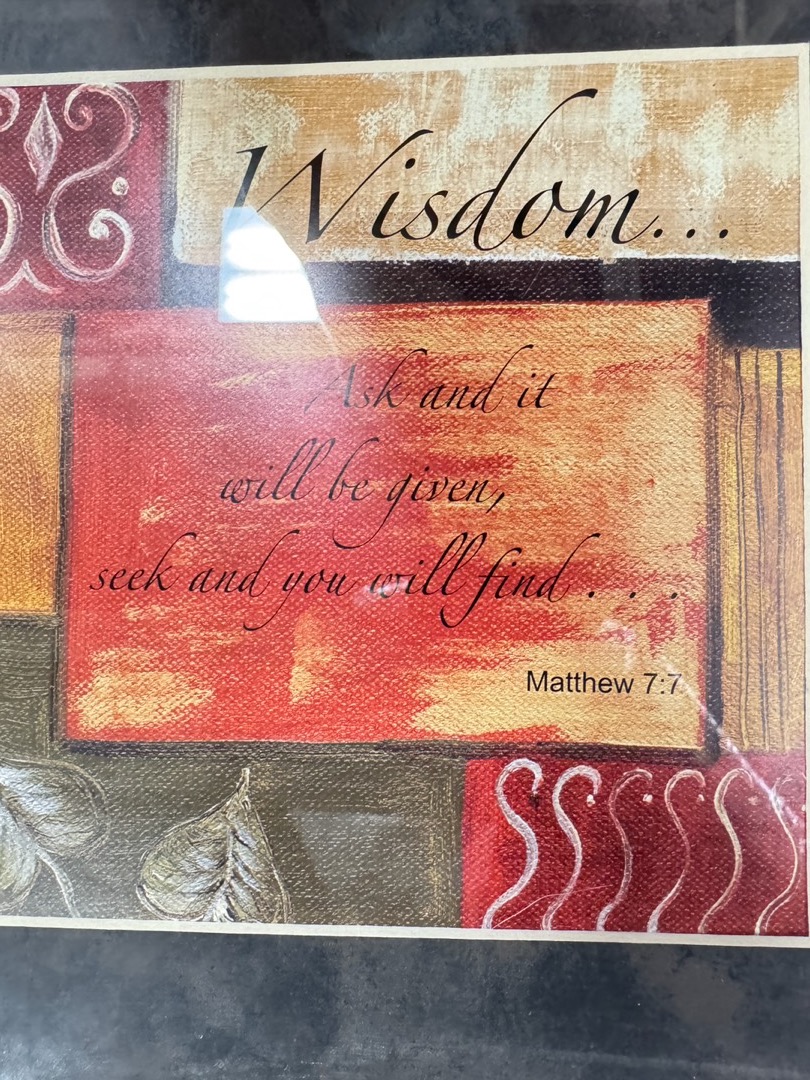 Wisdom...
Ask and it
will be given,
seek and you will find . . .
Matthew 7:7